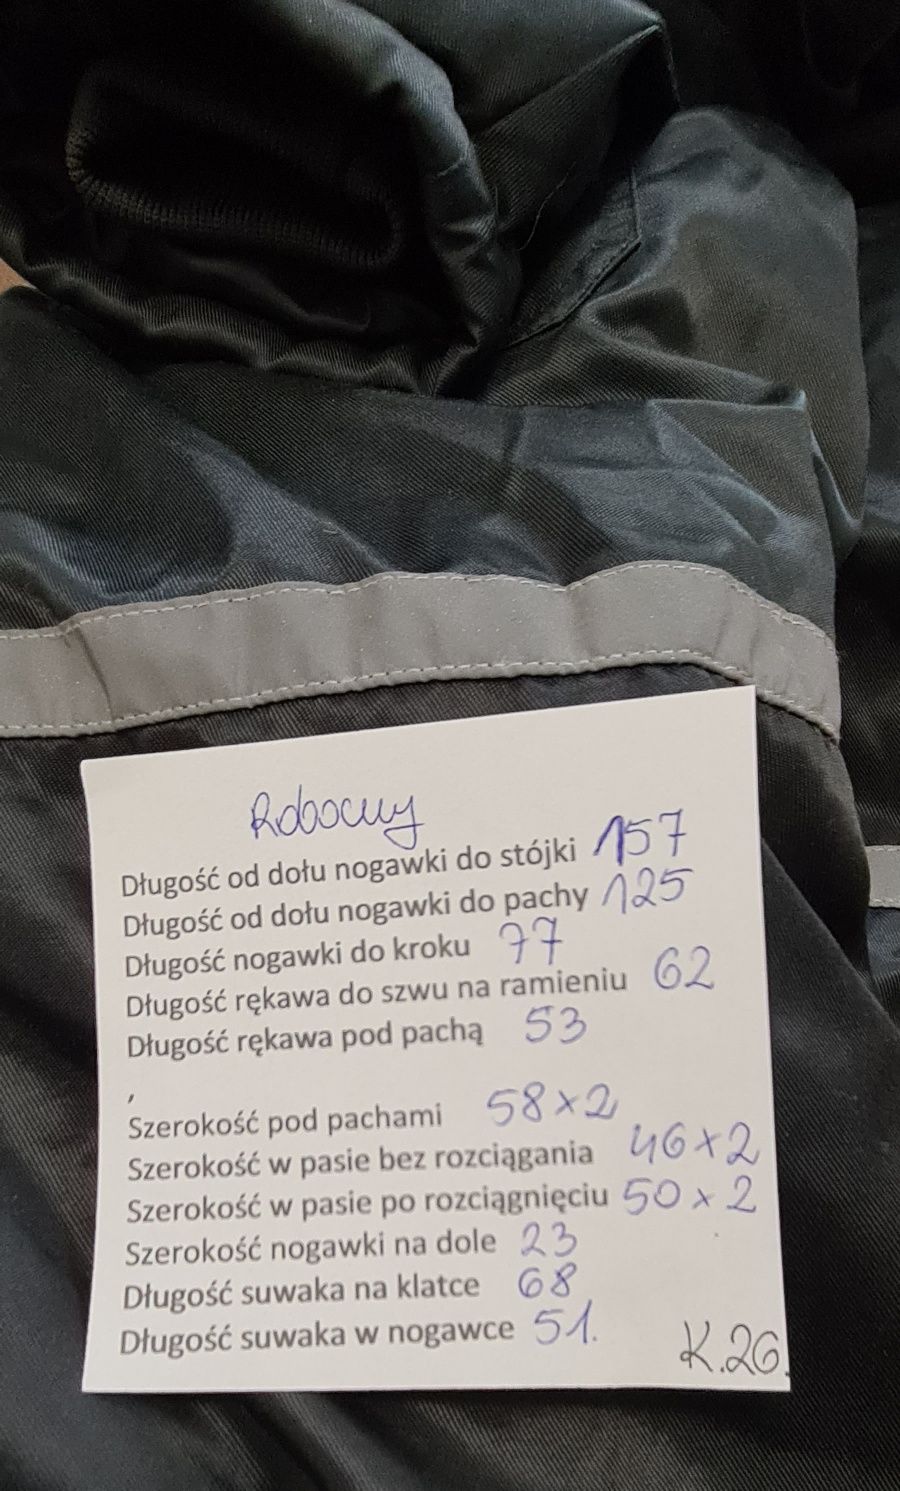 Roboczy
Długość od dołu nogawki do stójki 157
Długość od dołu nogawki do pachy 125
Długość nogawki do kroku 77
Długość rękawa do szwu na ramieniu 62
Długość rękawa pod pachą 53
,
Szerokość pod pachami 58x2
Szerokość w pasie bez rozciągania 46x2
Szerokość w pasie po rozciągnięciu 50x2
Szerokość nogawki na dole 23
Długość suwaka na klatce 68
Długość suwaka w nogawce 51.
K.26.